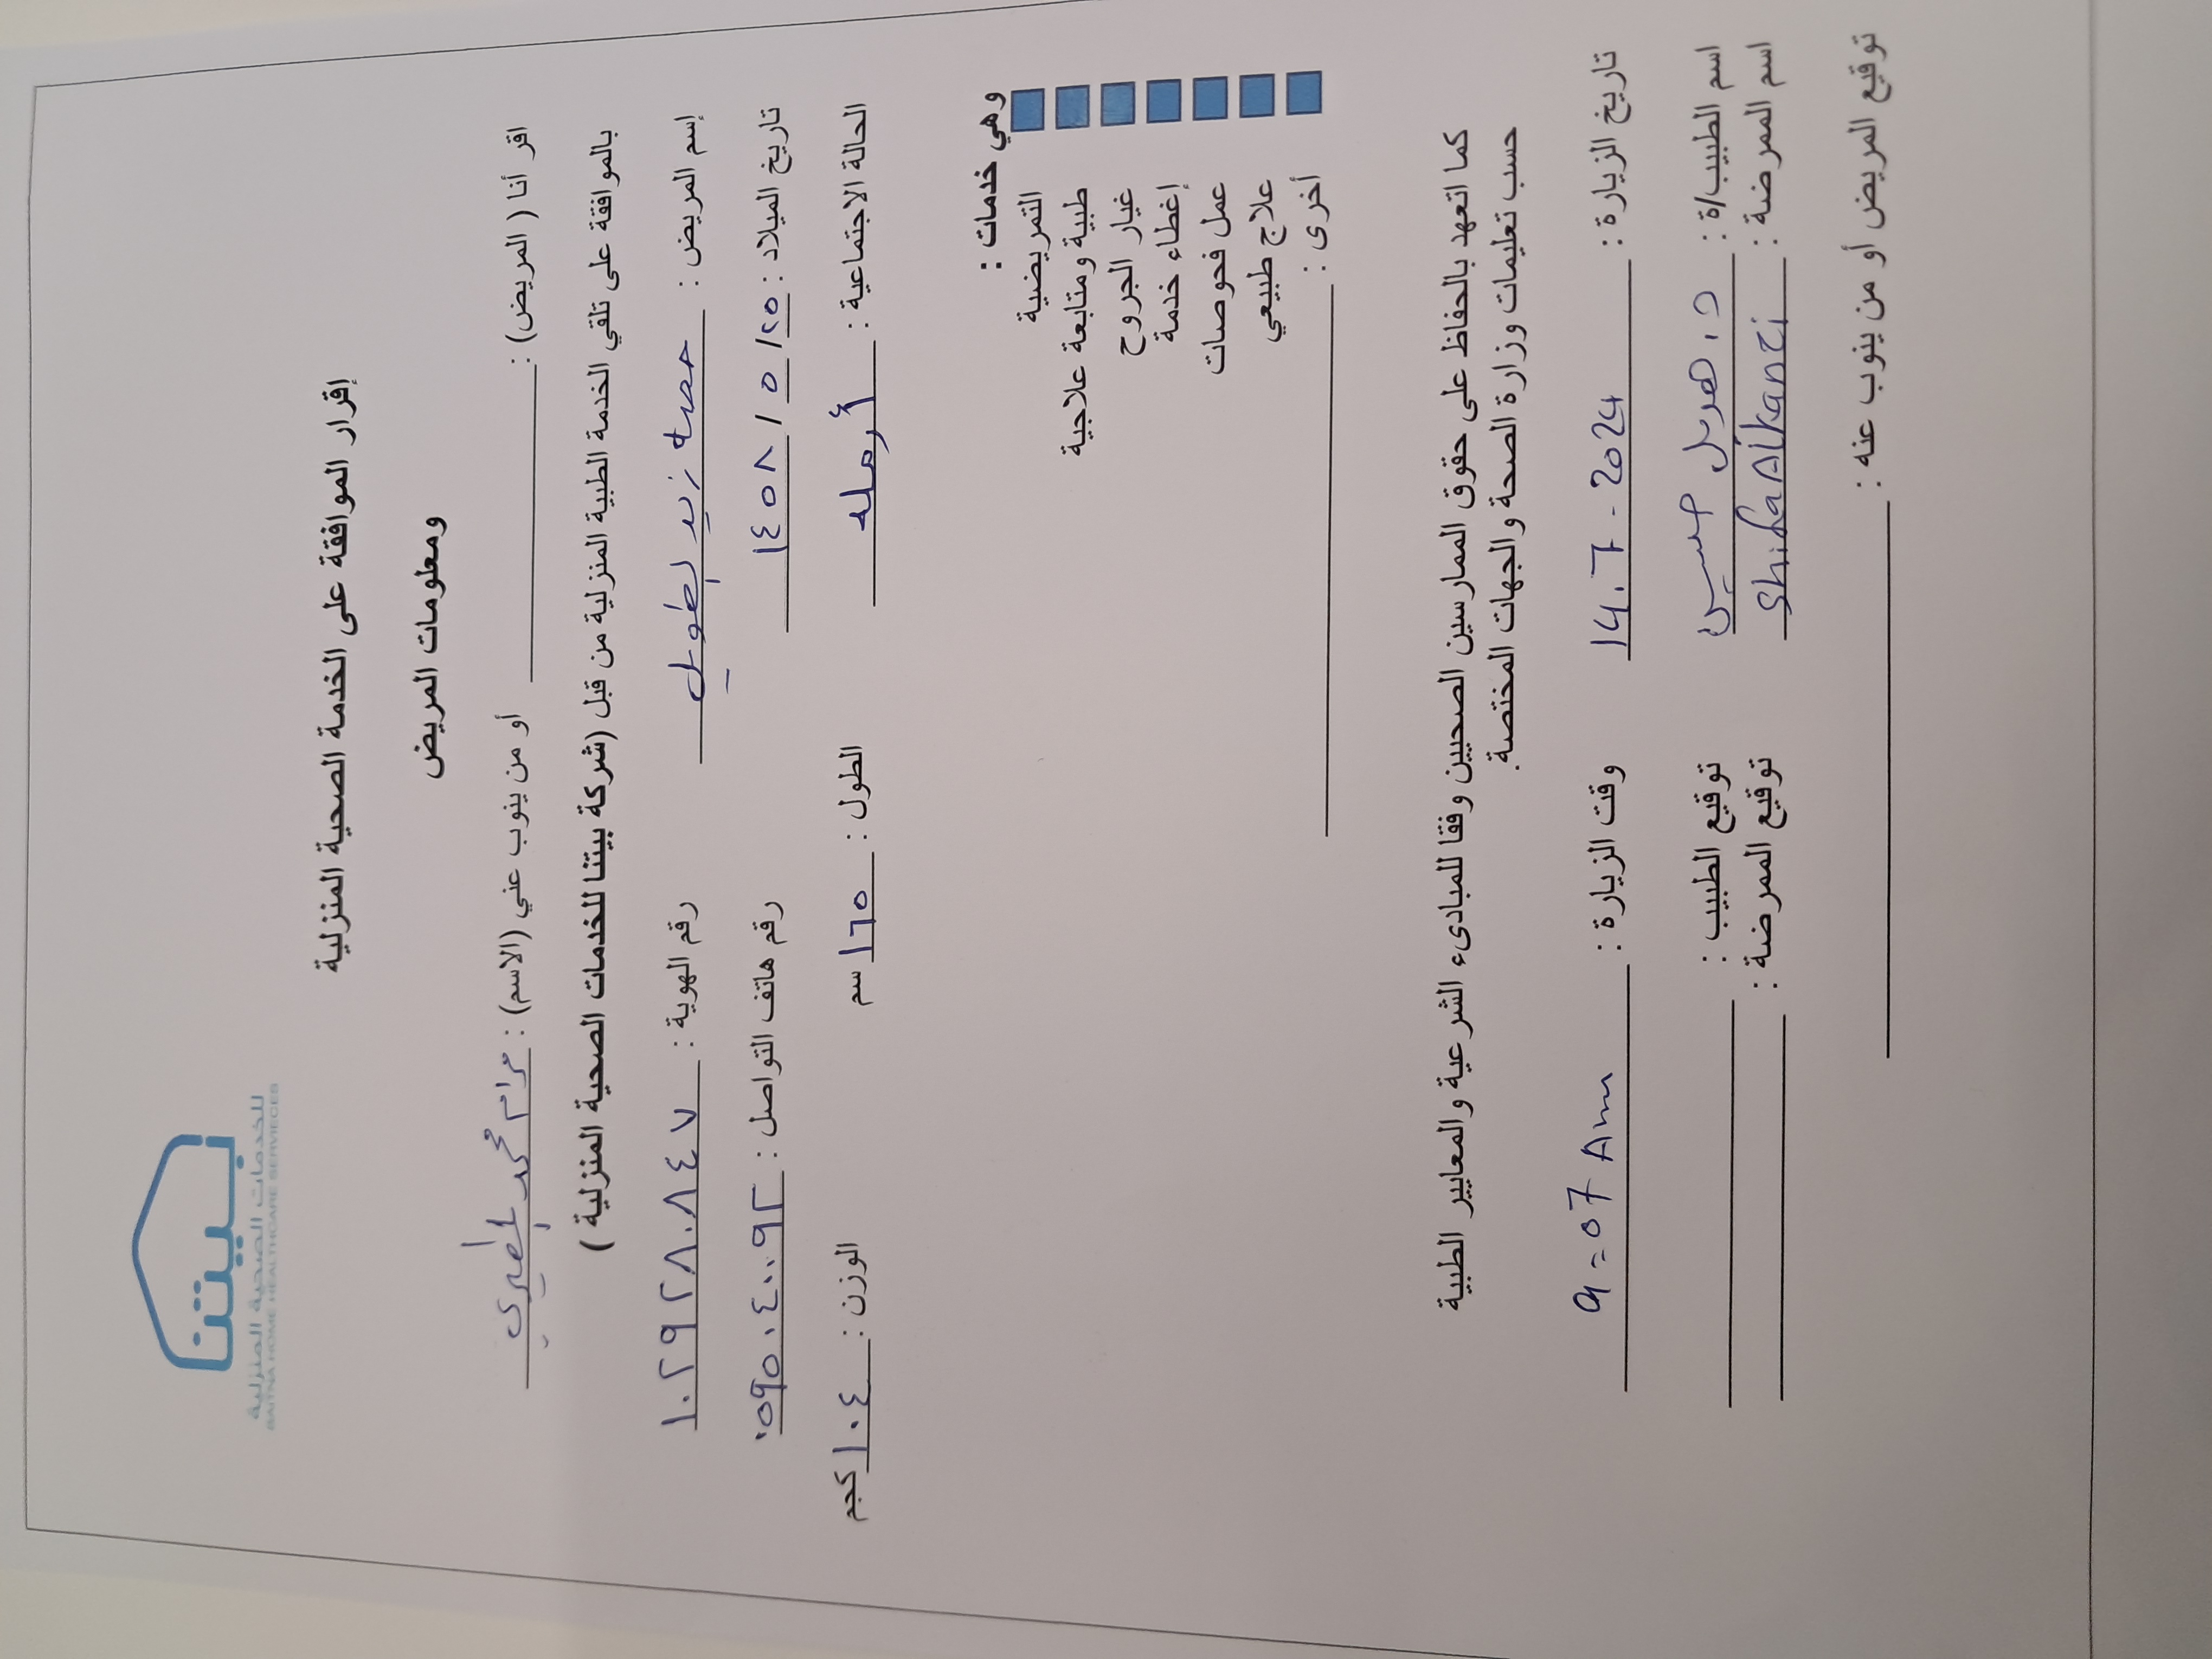 بيتنا
للخدمات الصحية المنزلية
BAITNA HOME HEALTHCARE SERVIECES
إقرار الموافقة على الخدمة الصحية المنزلية
ومعلومات المريض
اقر أنا ( المريض) : أو من ينوب عني (الاسم) : مرام محمد المطيري
بالموافقة على تلقي الخدمة الطبية المنزلية من قبل (شركة بيتنا للخدمات الصحية المنزلية )
إسم المريض : حصه زيد الطويل رقم الهوية : ١٠٢٩٢٨٠٨٤٧
تاريخ الميلاد : ٢٥ / ٥ / ١٤٥٨ رقم هاتف التواصل : ٠٥٩٥٠٤٠٠٩٢
الحالة الاجتماعية : أرمله الطول : ١٦٥ سم الوزن : ١٠٤ كجم
وهي خدمات :
التمريضية
طبية ومتابعة علاجية
غيار الجروح
إغطاء خدمة
عمل فحوصات
علاج طبيعي
أخرى :
كما اتعهد بالحفاظ على حقوق الممارسين الصحيين وفقا للمبادىء الشرعية والمعايير الطبية
حسب تعليمات وزارة الصحة والجهات المختصة.
تاريخ الزيارة : 14.7.2024 وقت الزيارة : 9:07 Am
اسم الطبيب/ة : د. هديل حسين توقيع الطبيب :
اسم الممرضة : Shifa Alkanzi توقيع الممرضة :
توقيع المريض أو من ينوب عنه :